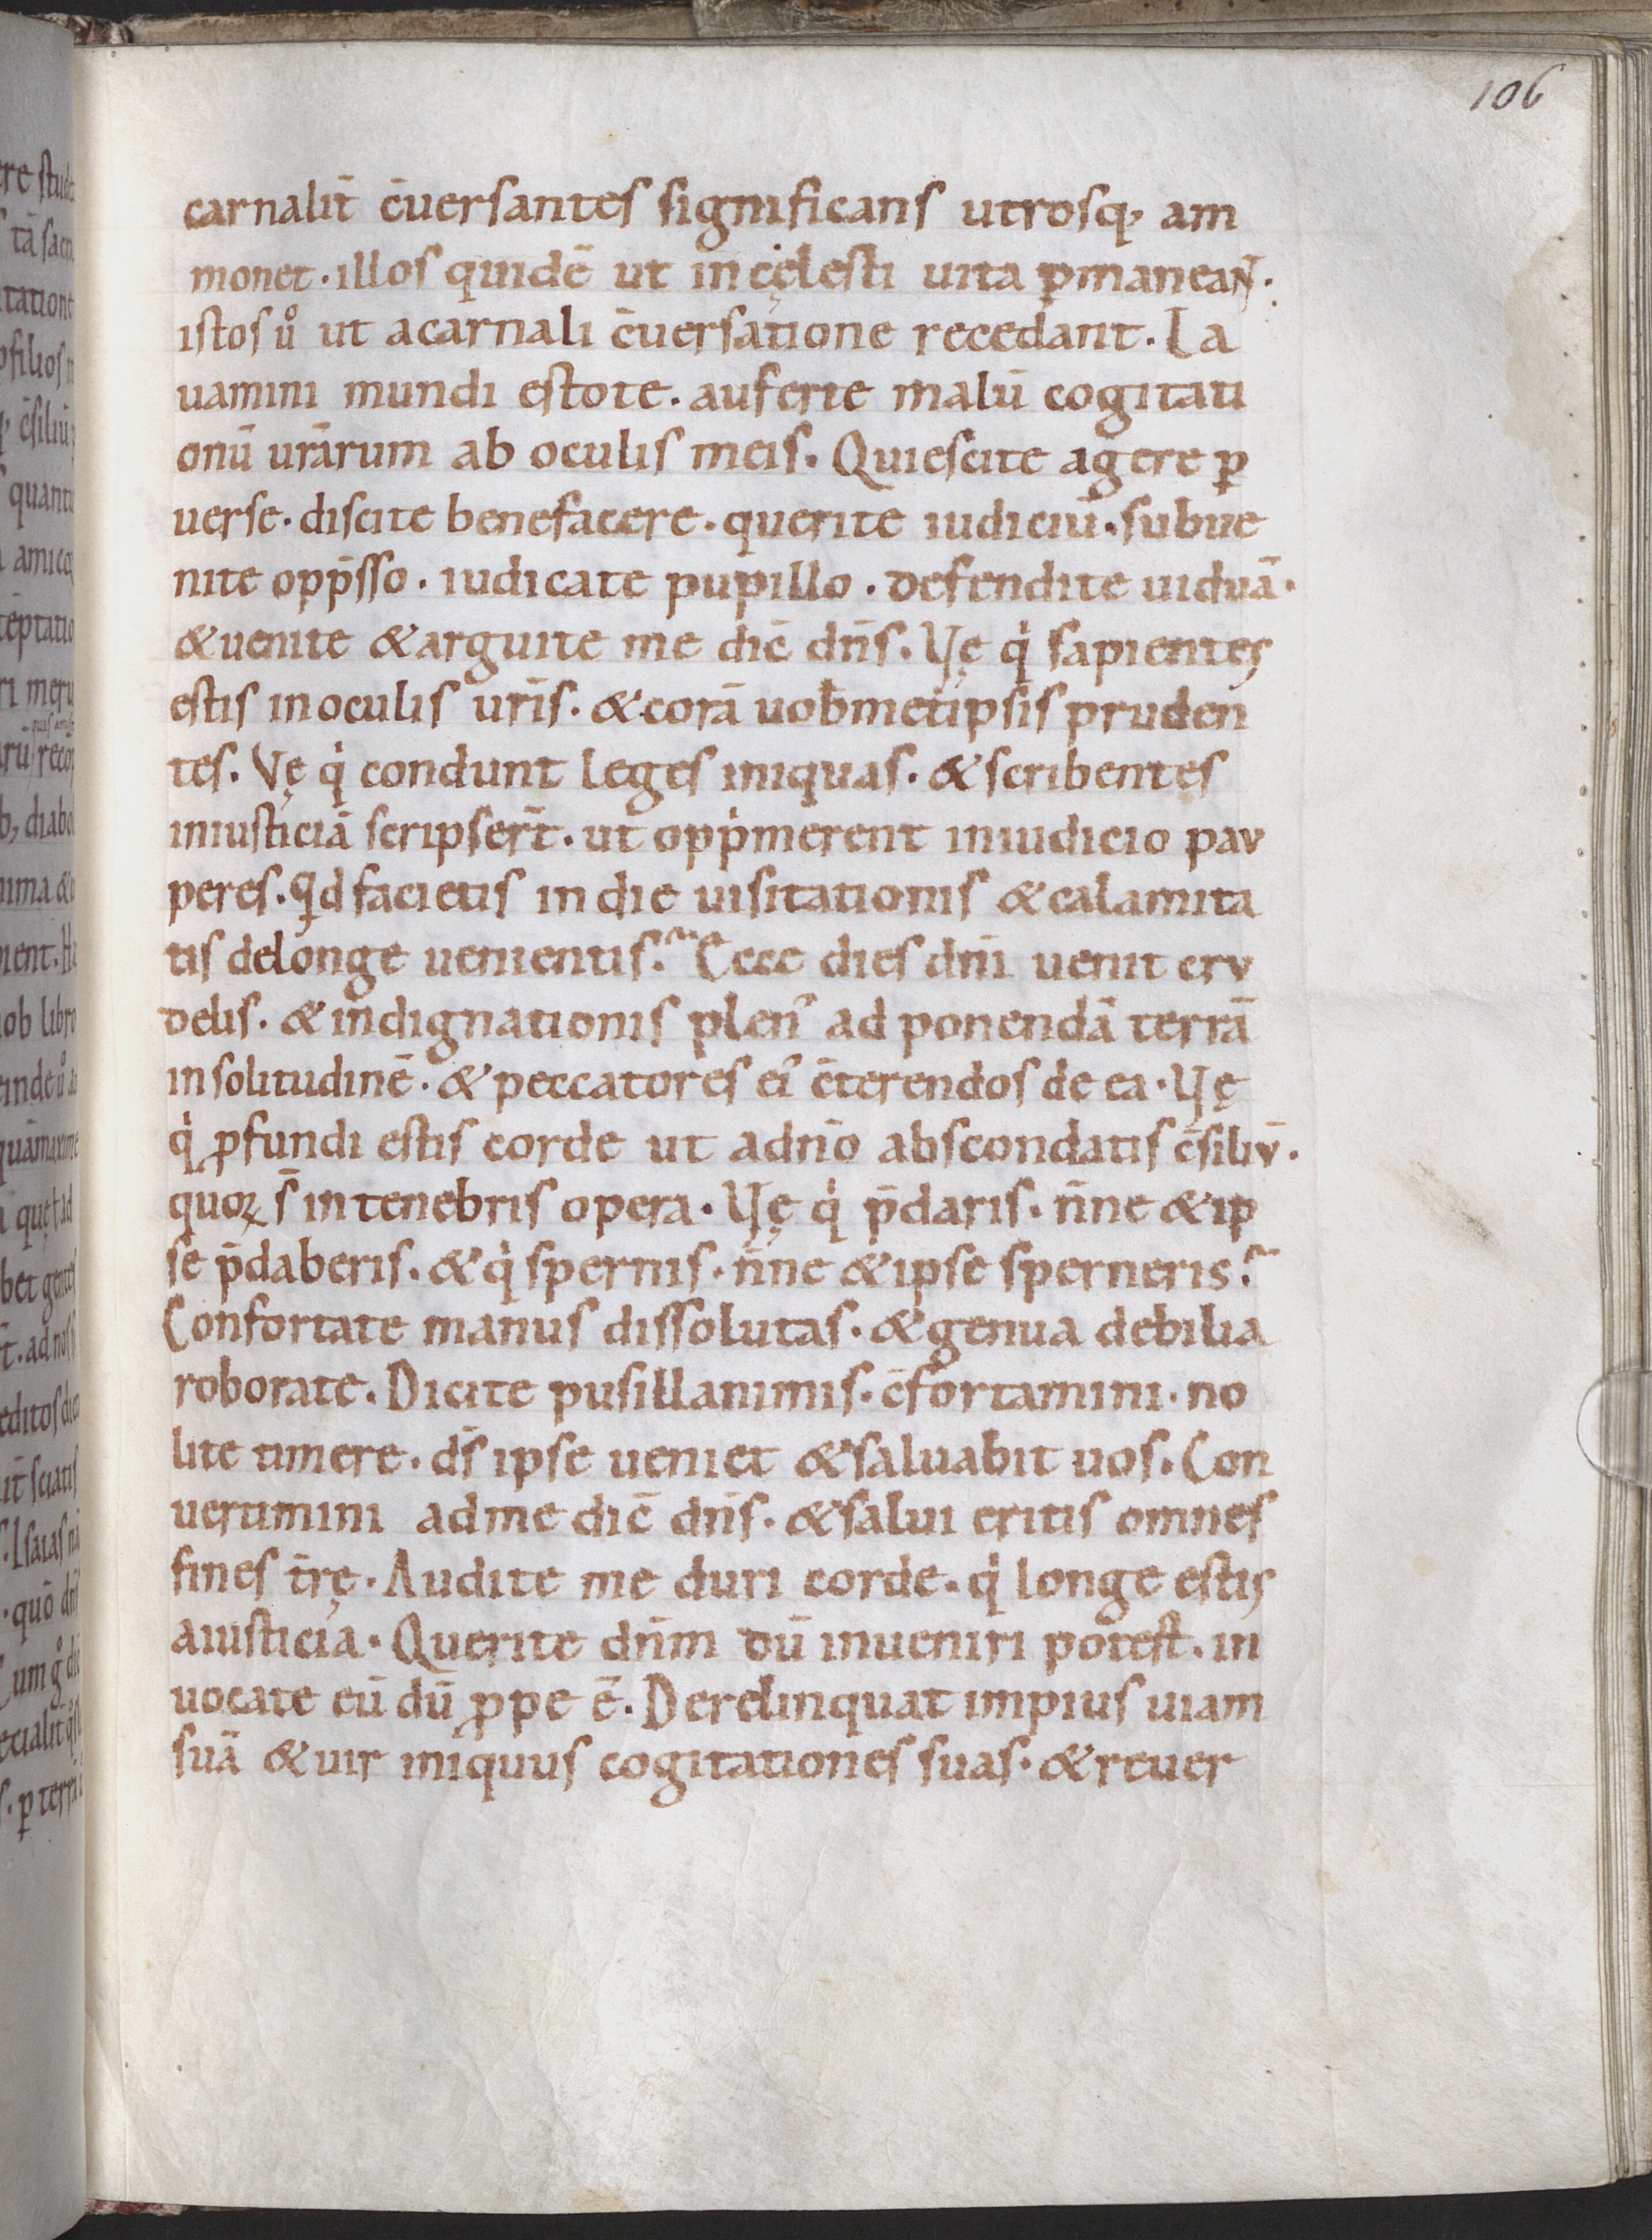 106
carnalit̄ c̄uersantes significans utrosq; am
monet. illos quidē ut in cęlesti uita ꝑmaneant.
istos ů ut acarnali c̄uersatione recedant. La
uamini mundi estote. auferte malū cogitati
onū urārum ab oculis meis. Quiescite agere ꝑ
uerse. discite benefacere. querite iudiciū. subue
nite opp̄sso. iudicate pupillo. defendite uiduā.
& uenite & arguite me dic̄ dn̄s. Vę qͥ sapientes
estis inoculis ur̄is. & corā uob̄metipsis pruden
tes. Vę qͥ condunt leges iniquas. & scribentes
iniusticiā scripser̄t. ut oppͥmerent iniudicio pau
peres. qͥd facietis in die uisitationis & calamita
tis delonge uenientis? Ecce dies dn̄i uenit cru
delis. & indignationis plen᷒ ad ponendā terrā
in solitudinē. & peccatores ei᷒ c̄terendos de ea. Vę
qͥ ꝓfundi estis corde ut adn̄o abscondatis c̄siliū.
quoꝝ s̄ in tenebris opera. Vę qͥ p̄daris. n̄ne & ip
se p̄daberis. & qͥ spernis. n̄ne & ipse sperneris?
Confortate manus dissolutas. & genua debilia
roborate. Dicite pusillanimis. c̄fortamini. no
lite timere. ds̄ ipse ueniet & saluabit uos. Con
uertimini adme dic̄ dn̄s. & salui eritis omnes
fines t̄rę. Audite me duri corde. qͥ longe estis
aiusticia. Querite dn̄m dū inueniri potest. in
uocate eū dū ꝓpe ē. Derelinquat impius uiam
suā & uir iniquus cogitationes suas. & reuer